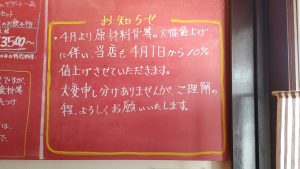 お知らせ
・4月より原材料費等の大幅値上げ
に伴い、当店も4月1日から10%
値上げさせていただきます。
大変申し訳ありませんが、ご理解の
程、よろしくお願いいたします。
セット
3500～
ですが、